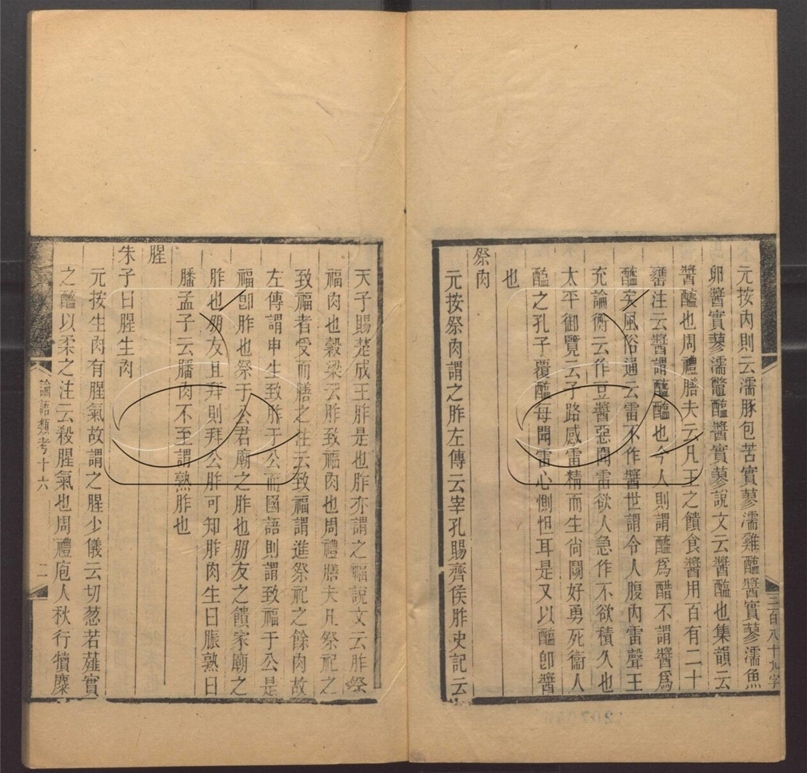 元按內則云濡豚包苦實蓼濡雞醢醬實蓼濡魚
卵醬實蓼濡鼈醢醬實蓼說文云醬醢也集韻云
醬醢也周禮膳夫云凡王之饋食醬用百有二十
罋注云醬謂醯醢也今人則謂醯為醋不謂醬為
醢矣風俗通云雷不作醬世謂令人腹內雷聲王
充論衡云作豆醬惡聞雷欲人急作不欲積久也
太平御覽云子路感雷精而生尚鬭好勇死衞人
醢之孔子覆醢每聞雷心惻怛耳是又以醢卽醬
也
祭肉
元按祭肉謂之胙左傳云宰孔賜齊侯胙史記云
天子賜楚成王胙是也胙亦謂之福說文云胙祭
福肉也穀梁云胙致福肉也周禮膳夫凡祭祀之
致福者受而膳之注云致福謂進祭祀之餘肉故
左傳謂申生致胙于公而國語則謂致福于公是
福卽胙也祭于公君廟之胙也朋友之饋家廟之
胙也朋友且拜則拜公胙可知胙肉生曰脤熟曰
膰孟子云膰肉不至謂熟胙也
腥
朱子曰腥生肉
元按生肉有腥氣故謂之腥少儀云切葱若薤實
之醯以柔之注云殺腥氣也周禮庖人秋行犢麋
論語類考十六
二
三百八十九字